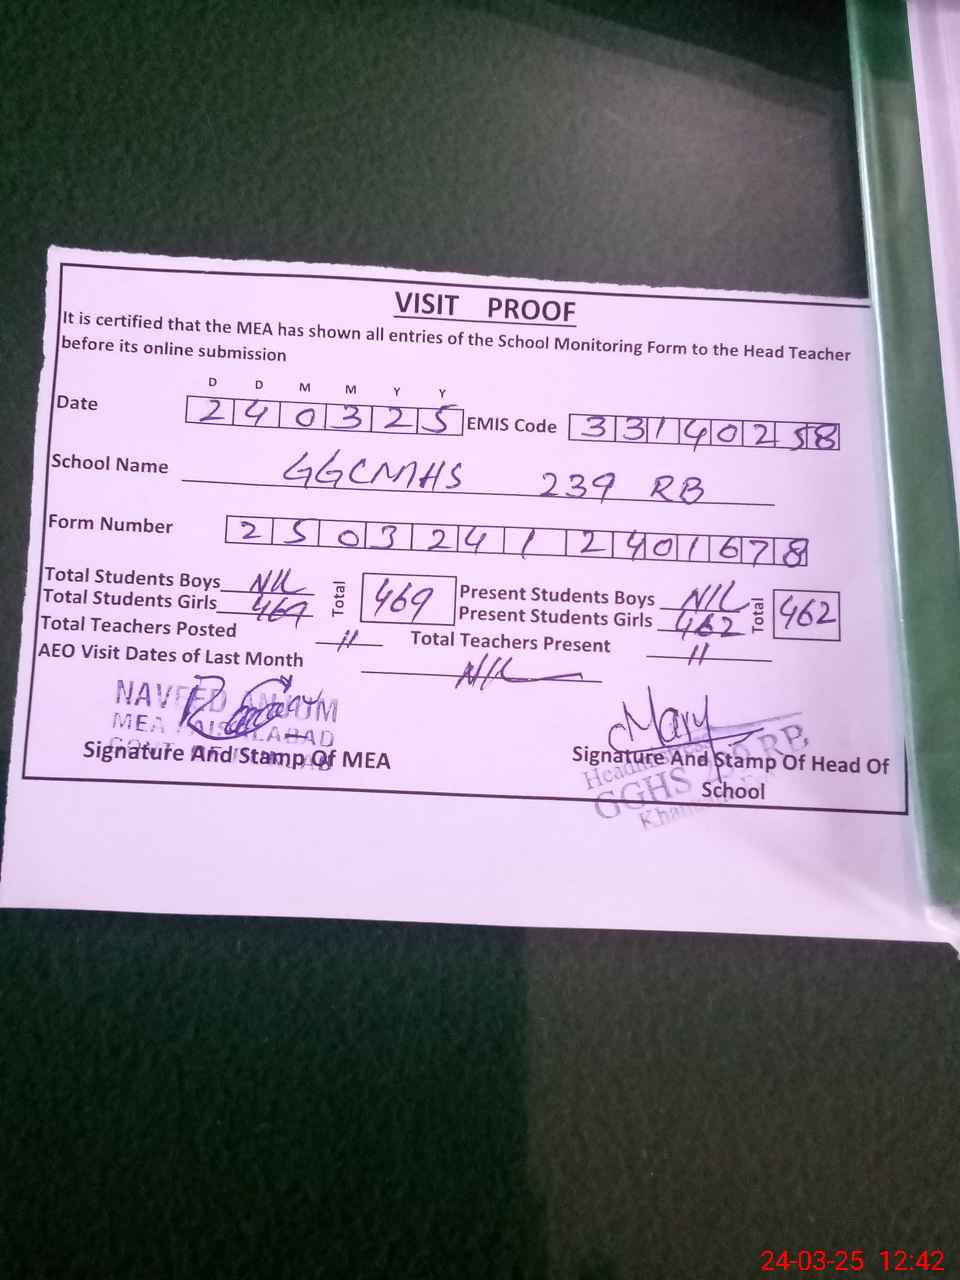 VISIT PROOF
It is certified that the MEA has shown all entries of the School Monitoring Form to the Head Teacher
before its online submission
D D M M Y Y
Date 2 4 0 3 2 5 EMIS Code 3 3 1 4 0 2 5 8
School Name GGCMHS 239 RB
Form Number 2 5 0 3 2 4 1 2 4 0 1 6 7 8
Total Students Boys NIL Total 469 Present Students Boys NIL Total 462
Total Students Girls 469 Present Students Girls 462
Total Teachers Posted 11 Total Teachers Present 11
AEO Visit Dates of Last Month NIL
NAVEED ANJUM
MEA FAISALABAD
Signature And Stamp Of MEA
Mary
Signature And Stamp Of Head Of
School
Headmistress
GGHS RB
24-03-25 12:42